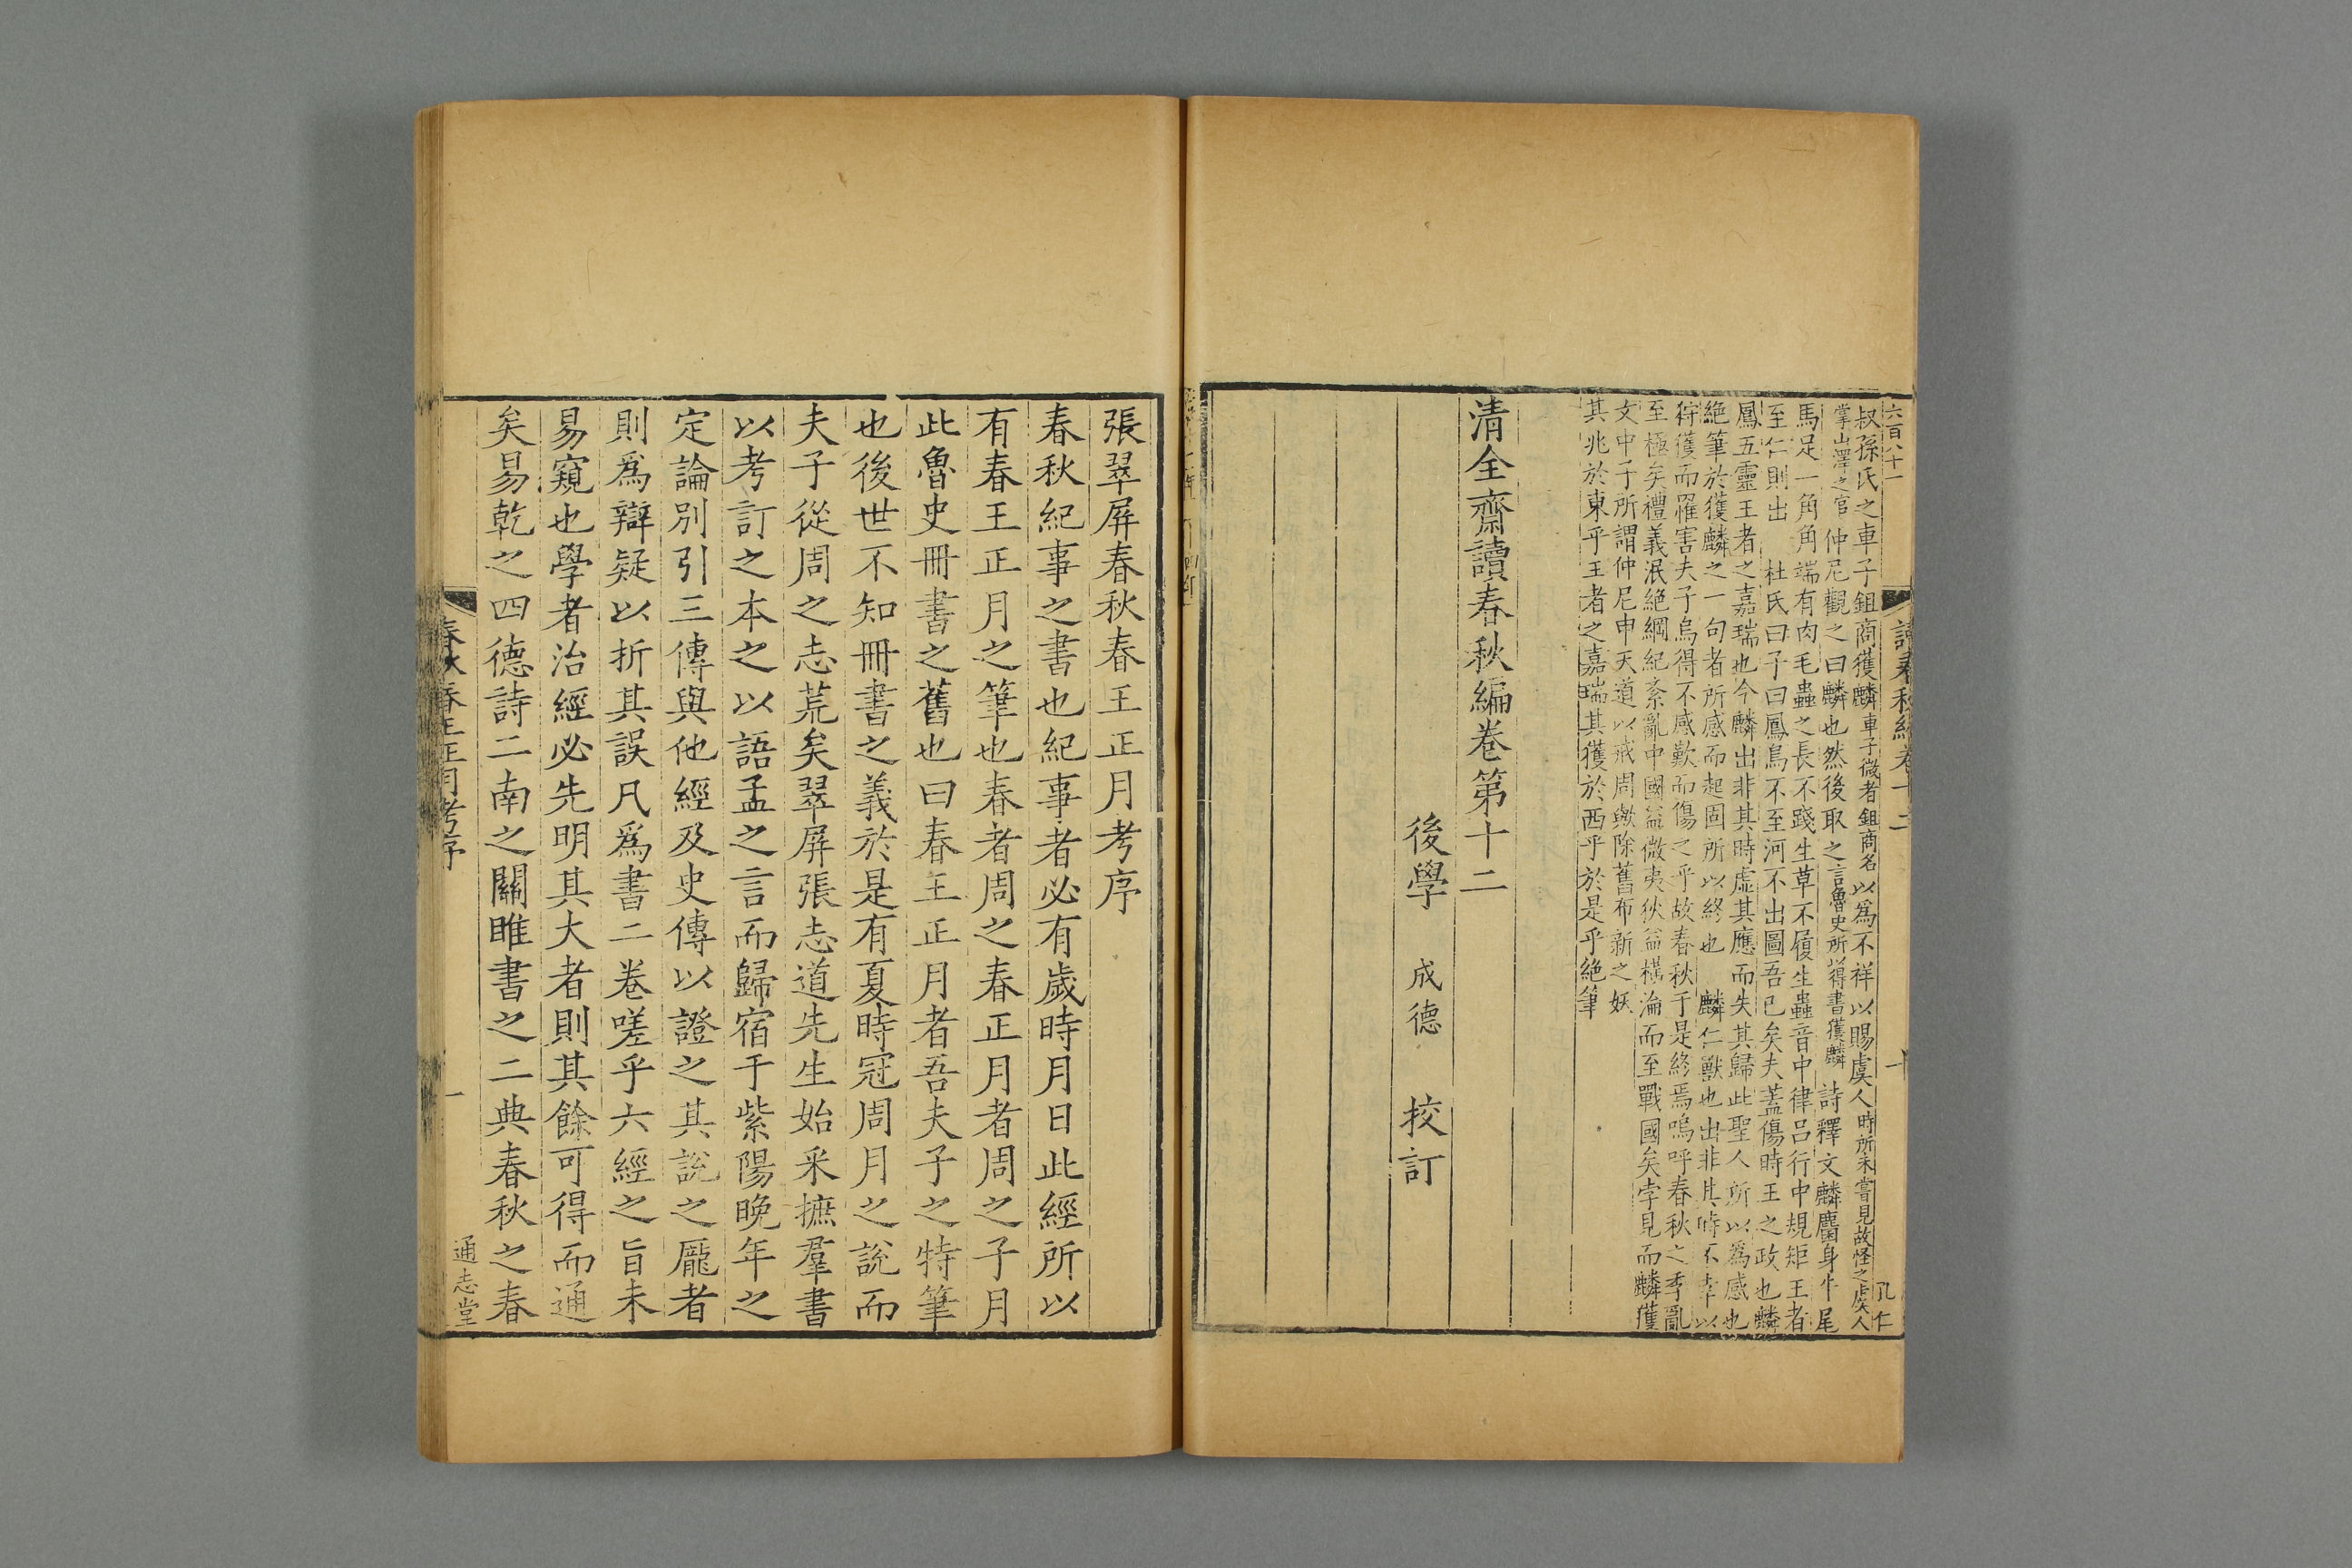 六百八十一
讀春秋編卷十二
十
孔仁
叔孫氏之車子鉏商獲麟車子微者鉏商名以為不祥以賜虞人時所未嘗見故怪之虞人
掌山澤之官仲尼觀之曰麟也然後取之言魯史所以得書獲麟詩釋文麟麕身牛尾
馬足一角角端有肉毛蟲之長不踐生草不履生蟲音中律呂行中規矩王者
至仁則出杜氏曰子曰鳳鳥不至河不出圖吾已矣夫蓋傷時王之政也麟
鳳五靈王者之嘉瑞也今麟出非其時虛其應而失其歸此聖人所以為感也
絕筆於獲麟之一句者所感而起固所以終也麟仁獸也出非其時不幸以
狩獲而罹害夫子烏得不感歎而傷之乎故春秋于是終焉嗚呼春秋之季亂
至極矣禮義泯絕綱紀紊亂中國益微夷狄益橫淪而至戰國矣孛見而麟獲
文中子所謂仲尼申天道以戒周歟除舊布新之妖
其兆於東乎王者之嘉瑞其獲於西乎於是乎絕筆
清全齋讀春秋編卷第十二
後學 成德 挍訂
張翠屏春秋春王正月考序
春秋紀事之書也紀事者必有歲時月日此經所以
有春王正月之筆也春者周之春正月者周之子月
此魯史冊書之舊也曰春王正月者吾夫子之特筆
也後世不知冊書之義於是有夏時冠周月之說而
夫子從周之志荒矣翠屏張志道先生始釆摭羣書
以考訂之本之以語孟之言而歸宿于紫陽晚年之
定論別引三傳與他經及史傳以證之其說之龎者
則為辯疑以折其誤凡為書二卷嗟乎六經之旨未
易窺也學者治經必先明其大者則其餘可得而通
矣易乾之四德詩二南之關雎書之二典春秋之春
春秋春王正月考序
一
通志堂